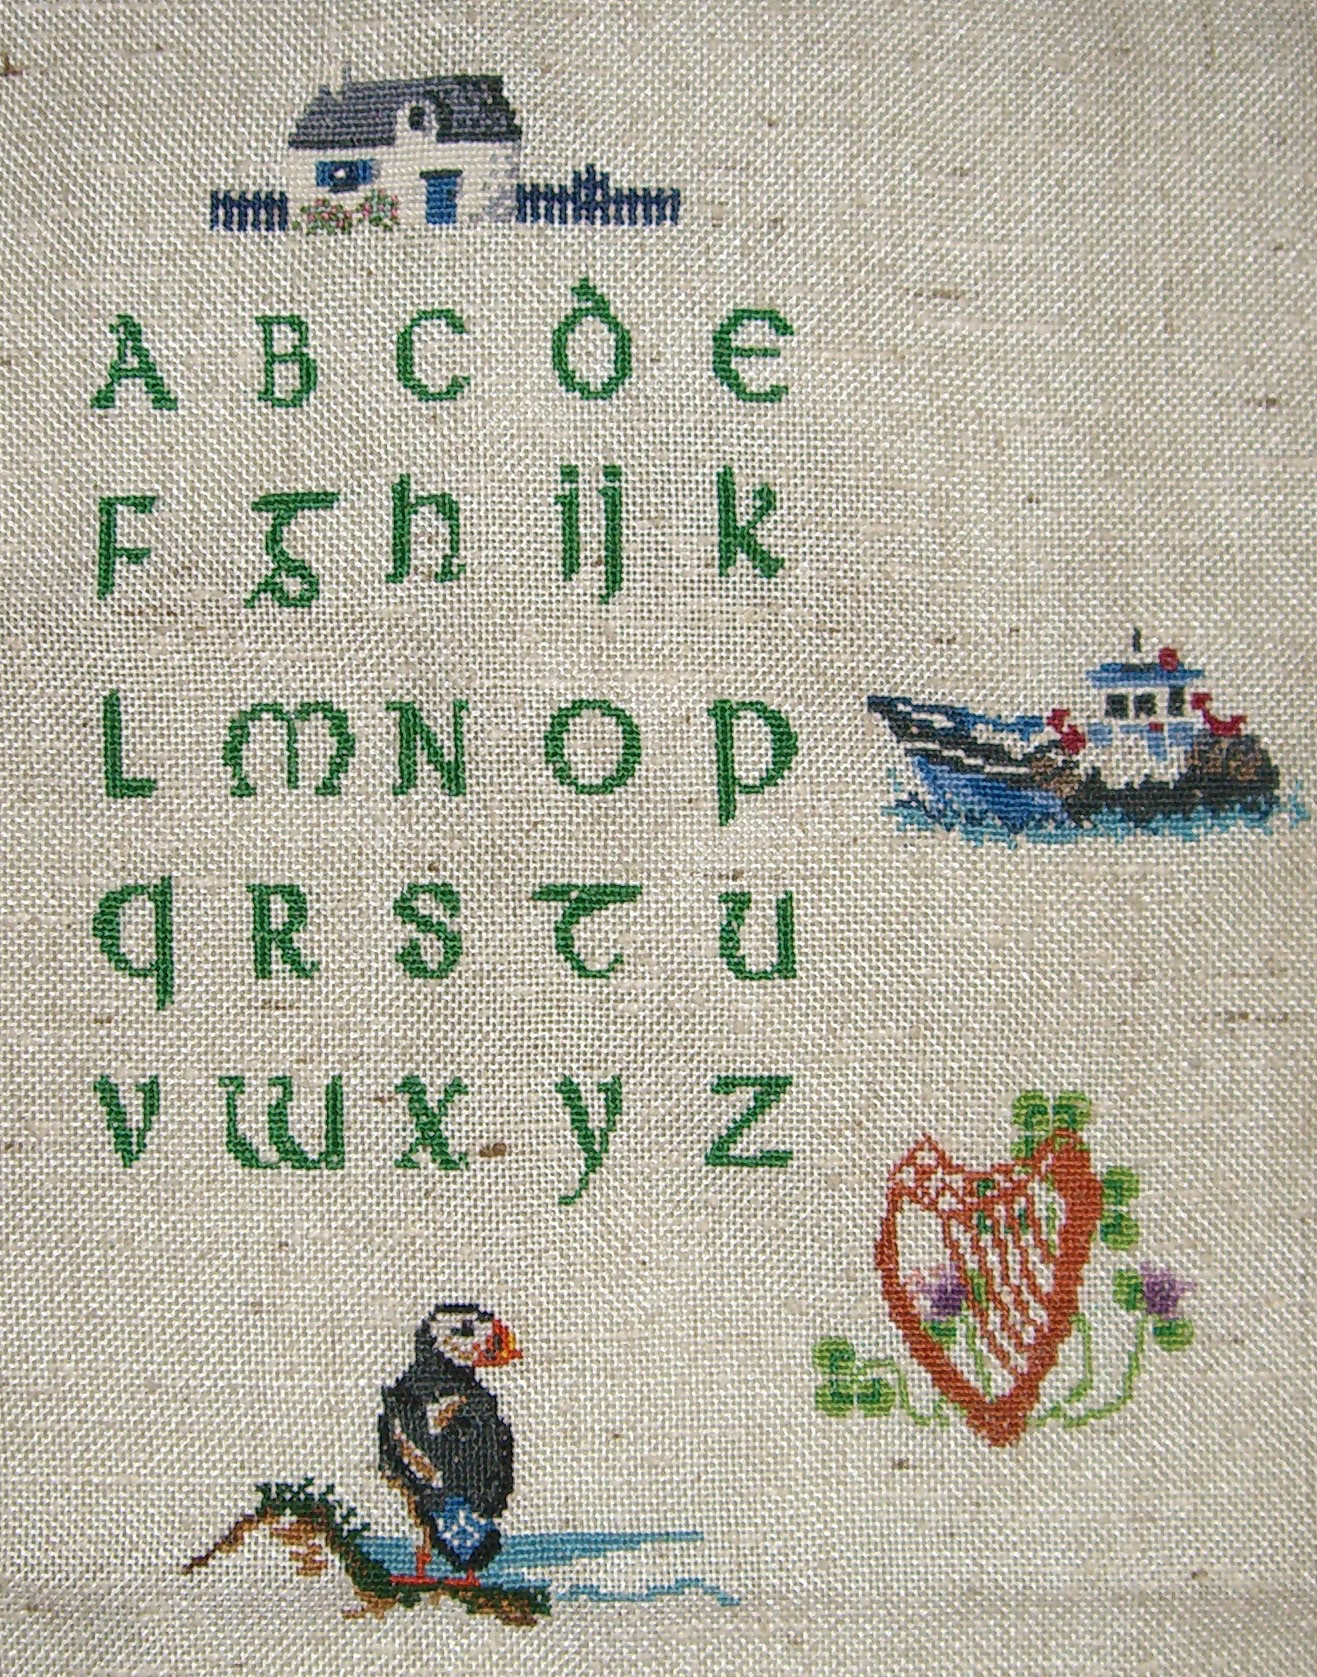 A B C D E
F G h ij k
L m N O p
q R S T u
v w x y z